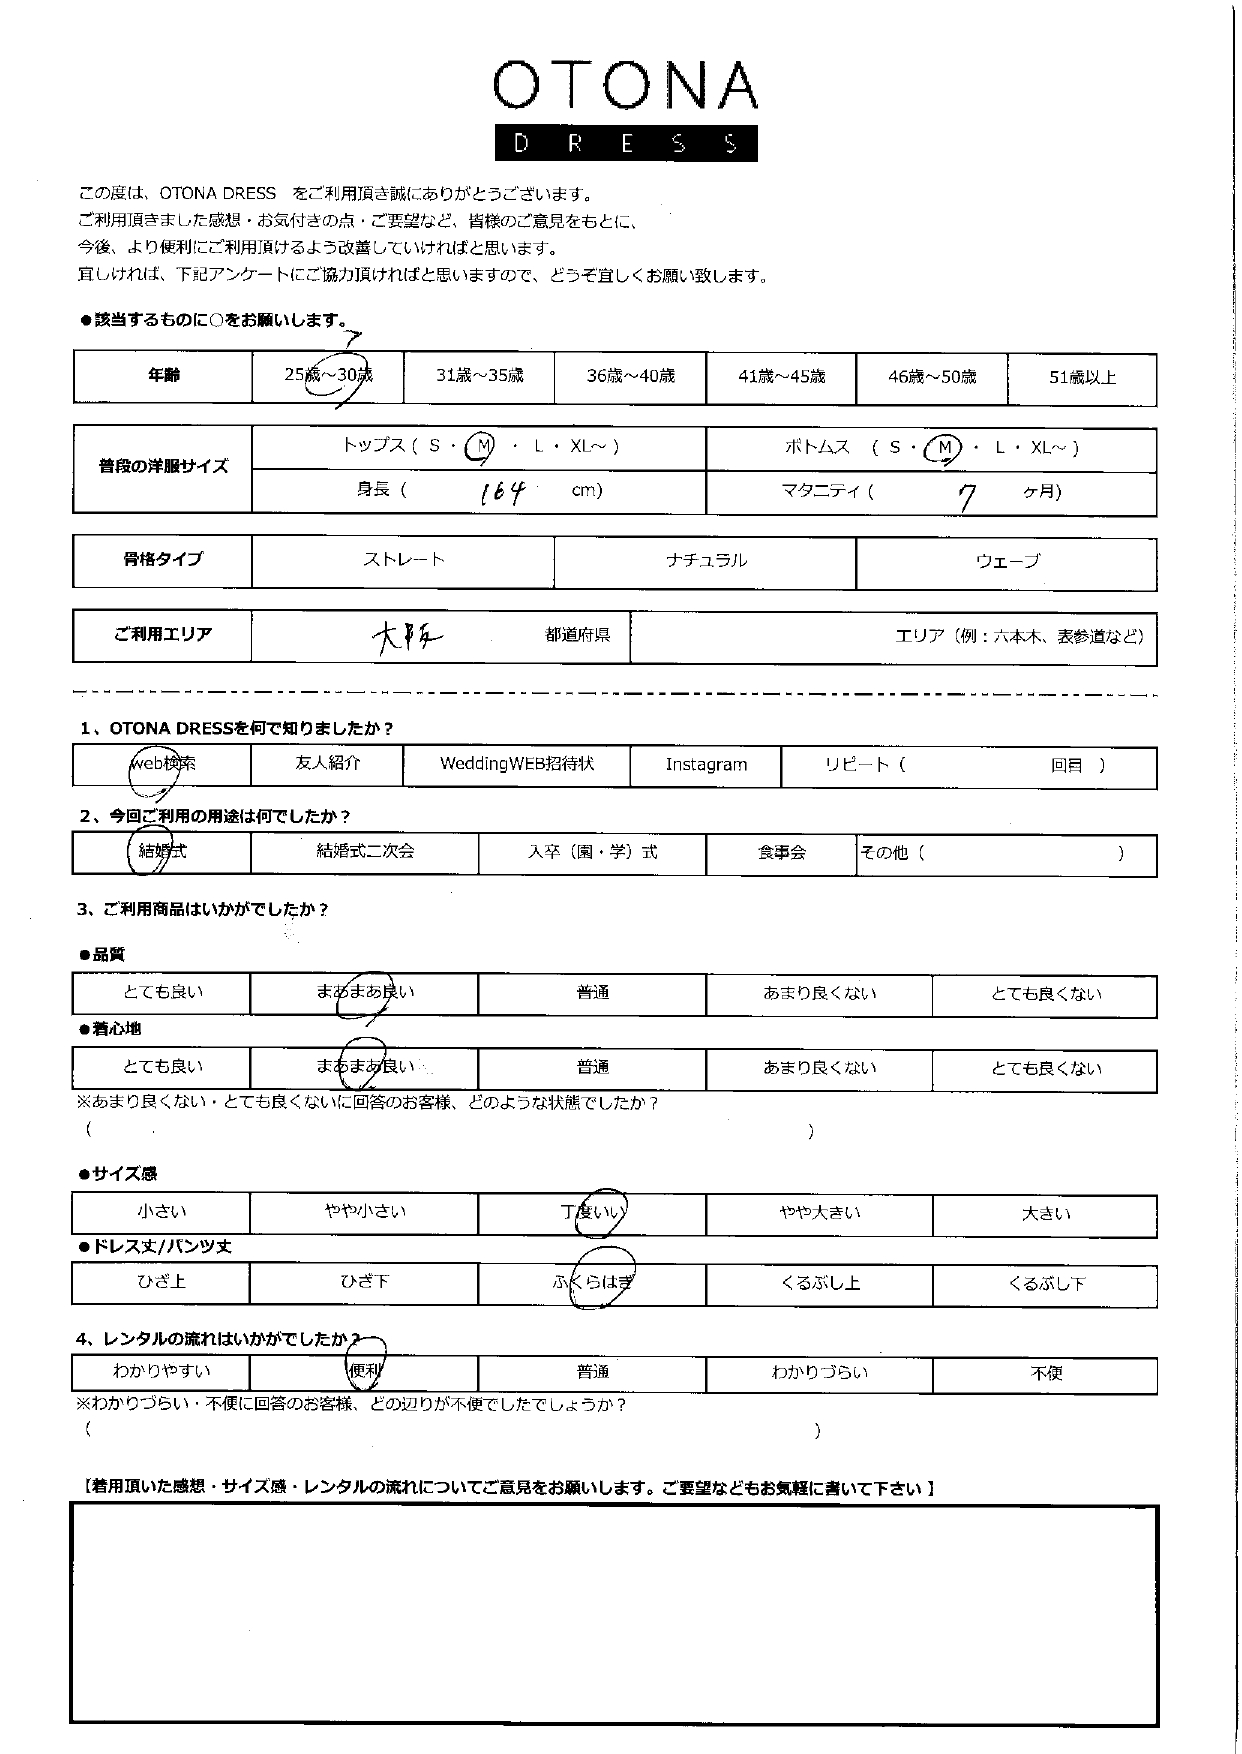 OTONA
DRESS
この度は、OTONA DRESS　をご利用頂き誠にありがとうございます。
ご利用頂きました感想・お気付きの点・ご要望など、皆様のご意見をもとに、
今後、より便利にご利用頂けるよう改善していければと思います。
宜しければ、下記アンケートにご協力頂ければと思いますので、どうぞ宜しくお願い致します。
●該当するものに○をお願いします。
年齢 25歳～30歳 31歳～35歳 36歳～40歳 41歳～45歳 46歳～50歳 51歳以上
普段の洋服サイズ トップス ( S ・ M ・ L ・ XL～ ) ボトムス ( S ・ M ・ L ・ XL～ )
身長 ( 164 cm) マタニティ ( 7 ヶ月)
骨格タイプ ストレート ナチュラル ウェーブ
ご利用エリア 大阪 都道府県 エリア（例：六本木、表参道など）
1、OTONA DRESSを何で知りましたか？
web検索 友人紹介 WeddingWEB招待状 Instagram リピート（ 回目 ）
2、今回ご利用の用途は何でしたか？
結婚式 結婚式二次会 入卒（園・学）式 食事会 その他（ ）
3、ご利用商品はいかがでしたか？
●品質
とても良い まあまあ良い 普通 あまり良くない とても良くない
●着心地
とても良い まあまあ良い 普通 あまり良くない とても良くない
※あまり良くない・とても良くないに回答のお客様、どのような状態でしたか？
（ ）
●サイズ感
小さい やや小さい 丁度いい やや大きい 大きい
●ドレス丈/パンツ丈
ひざ上 ひざ下 ふくらはぎ くるぶし上 くるぶし下
4、レンタルの流れはいかがでしたか？
わかりやすい 便利 普通 わかりづらい 不便
※わかりづらい・不便に回答のお客様、どの辺りが不便でしたでしょうか？
（ ）
【着用頂いた感想・サイズ感・レンタルの流れについてご意見をお願いします。ご要望などもお気軽に書いて下さい】